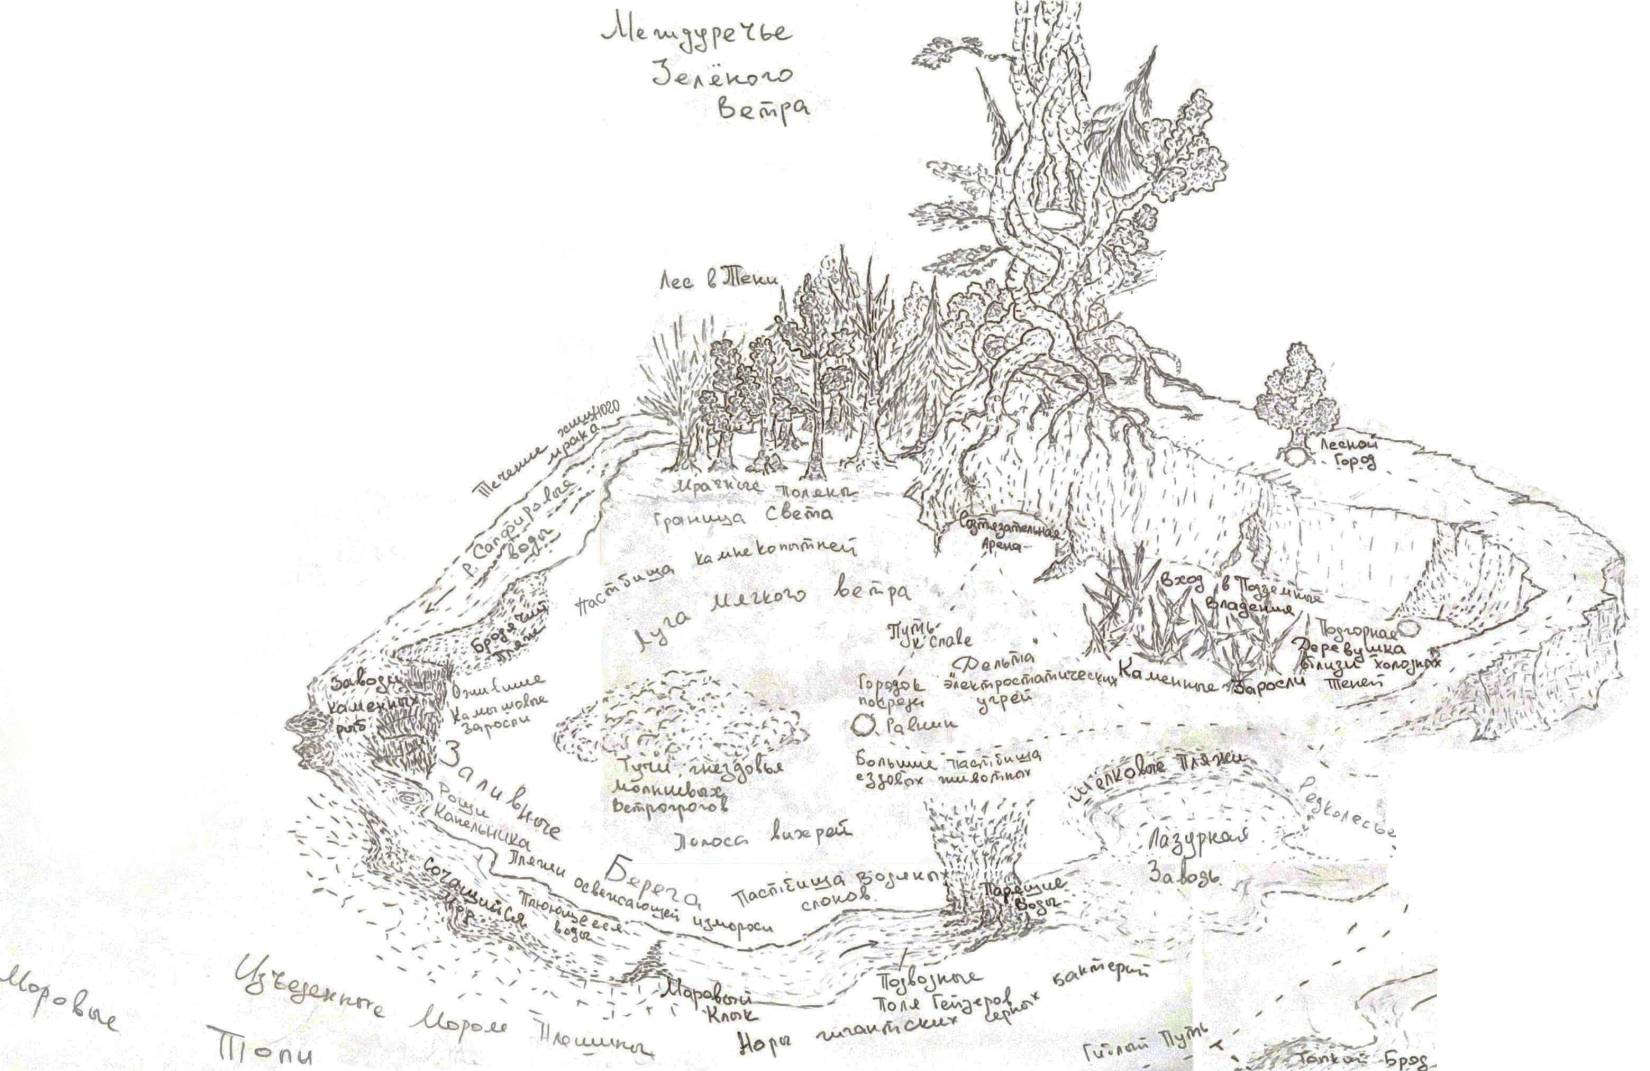 Междуречье
Зелёного
Ветра
Лес в Тени
Течение хищного
мрака
р. Сапфировые
воды
Мрачные поляны
Граница Света
Пастбища камнекопытней
Луга мягкого ветра
Состязательная
Арена
Лесной
Город
Вход в Подземные
Владения
Подгорная
Деревушка
вблизи холодных
Теней
Каменные Заросли
Путь
к Славе
Дельта
электростатических
угрей
Городок
посреди
Равнин
Большие пастбища
ездовых животных
Бродячий
Пляж
Заводи
каменных
рыб
Ожившие
Камышовые
Заросли
Заливные
Берега
Рощи
Капельника
Тучи-гнездовья
молниевых
ветророгов
Полоса вихрей
Пляжи освежающей измороси
Пастбища водяных
слонов
Сочащийся
Мор
Плюющееся
воды
Парящие
Воды
Шелковые Пляжи
Лазурная
Заводь
Редколесье
Моровый
Клык
Подводные
Поля Гейзеров
Норы гигантских серных бактерий
Изъеденные Мором Плешины
Моровые
Топи
Гиблый Путь
Топкий Брод